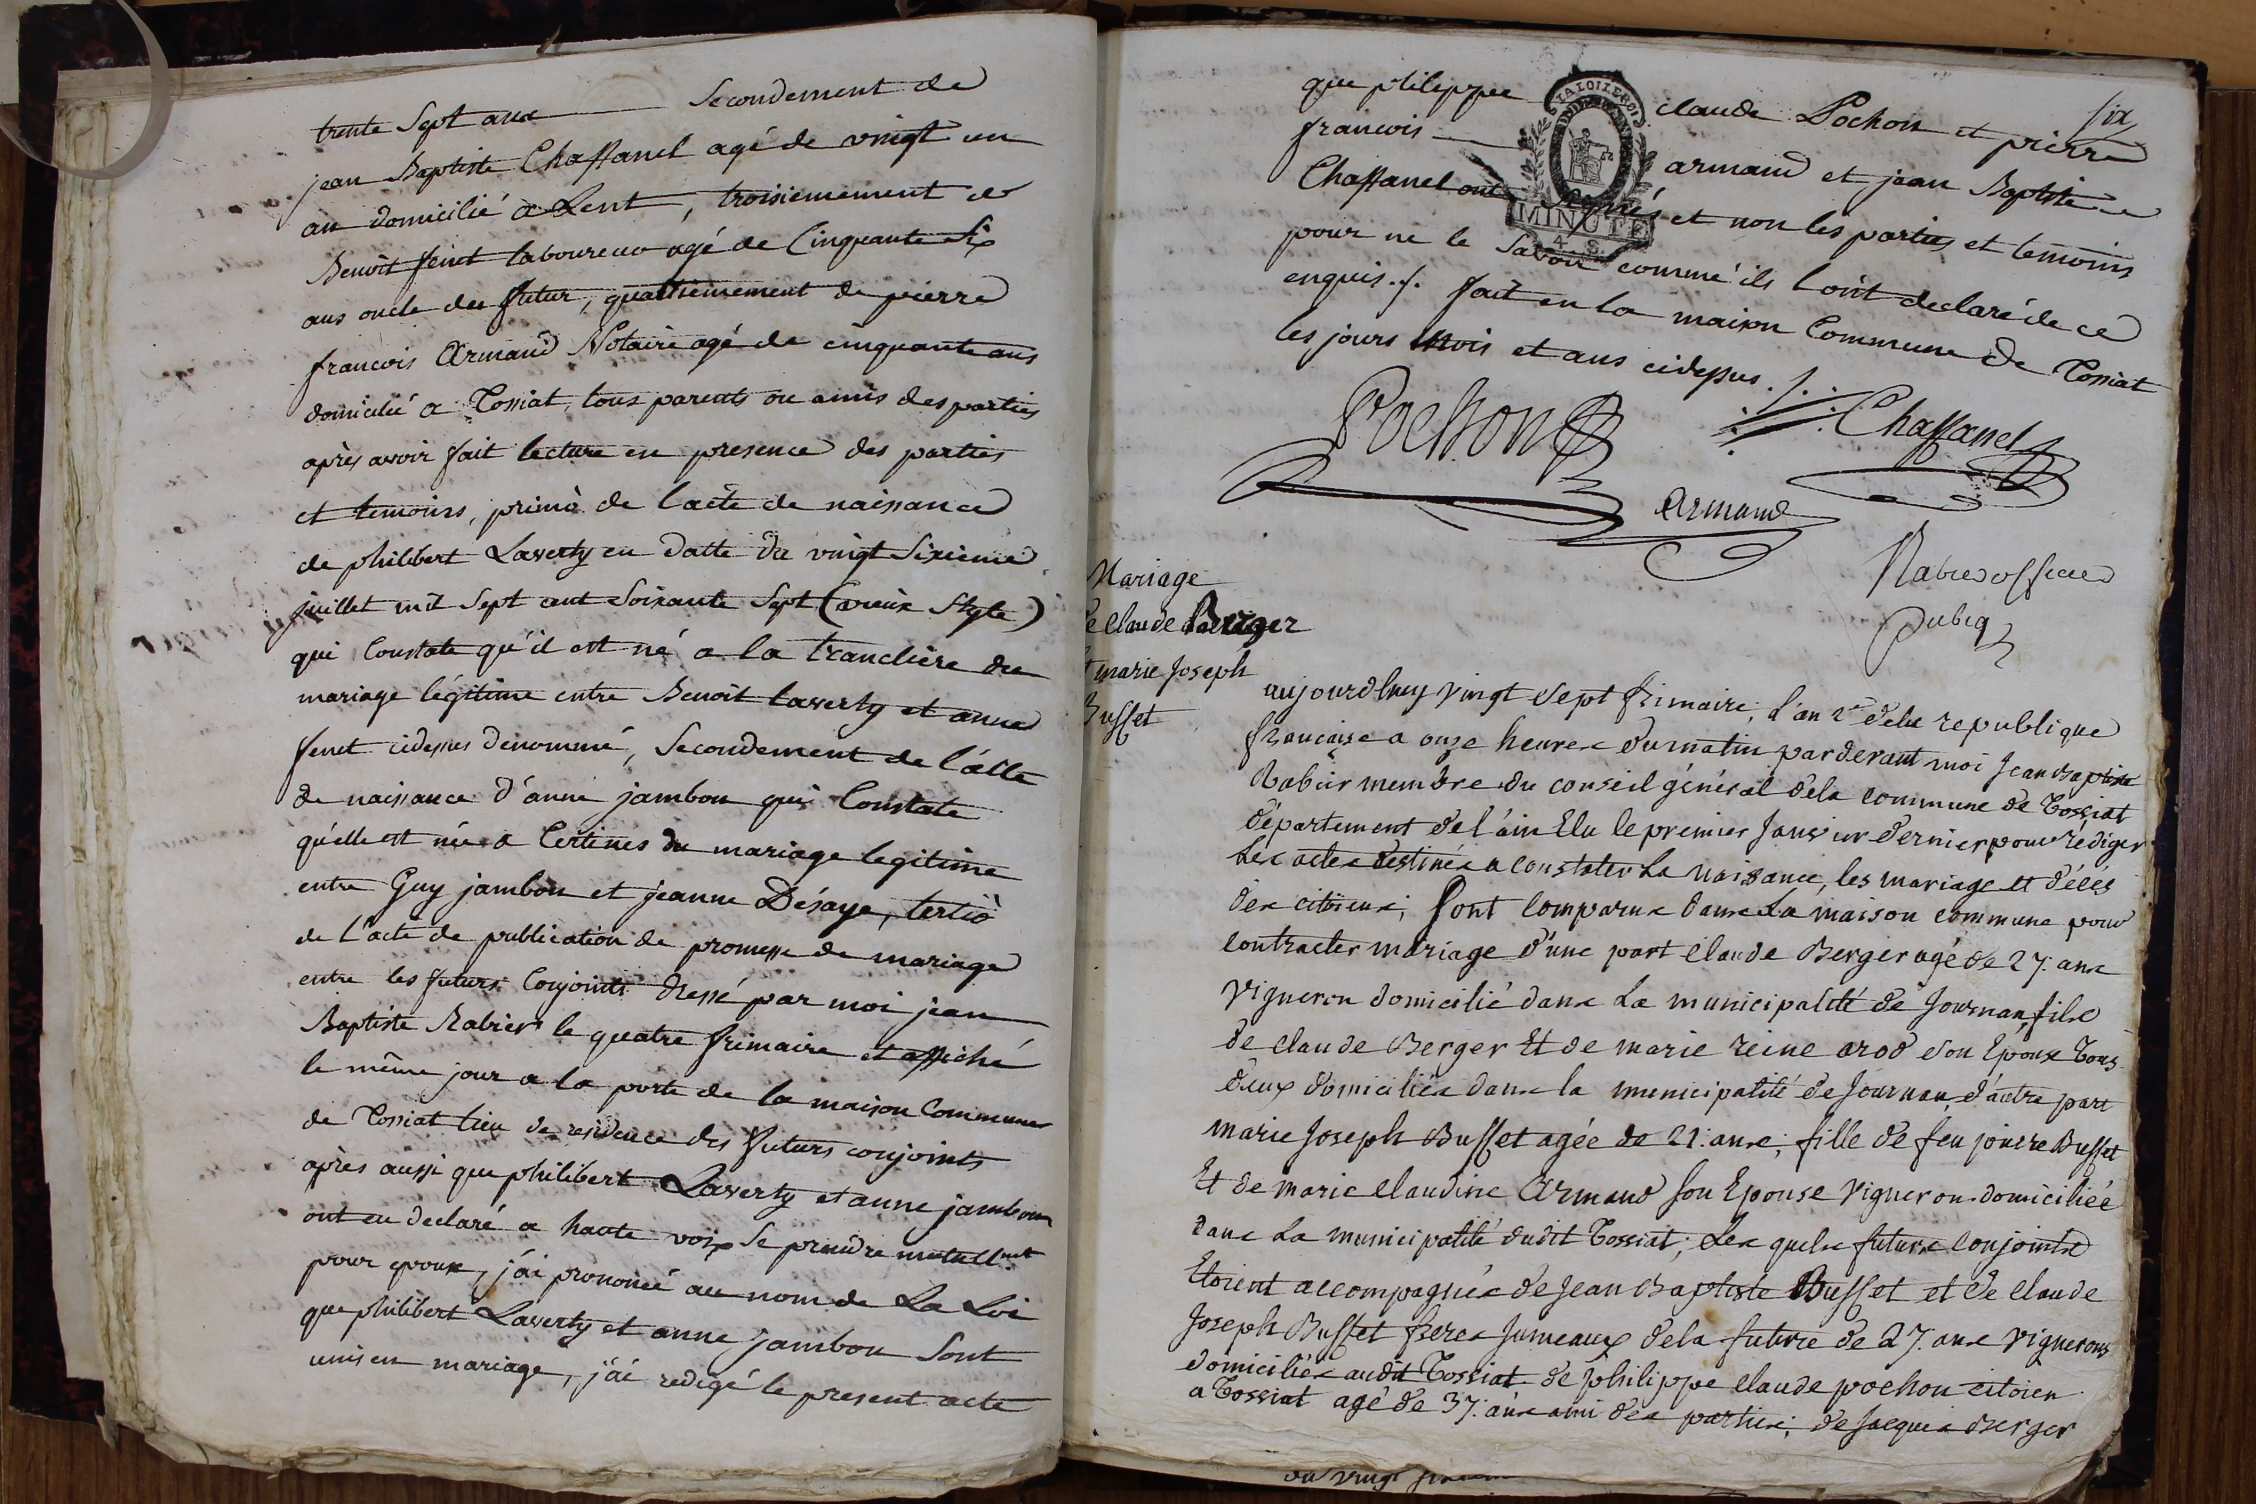 trente Sept ans Secondement de
jean Baptiste Chaffanel agé de vingt un
an domicilié a Lent, troisiemement de
Benoit feint laboureur agé de Cinquante Six
ans oncle du futur, quatriemement de pierre
francois Armand Notaire agé de cinquante ans
domicilié a Tossiat, tous parents ou amis des parties
après avoir fait lecture en presence des parties
et temoins, primò de lacte de naissance
de philibert Laverty en datte du vingt Sixieme
juillet mil Sept cent Soixante Sept (vieux Style)
qui Constate qu'il est né a la tranclière du
mariage légitime entre Benoit Laverty et anne
fenet cidessus denommé, Secondement de l'acte
de naissance d'anne jambon qui Constate
qu'elle est née a Certines du mariage legitime
entre Guy jambon et jeanne Désaye, tertiò
de l'acte de publication de promesse de mariage
entre les futurs Conjoints dressé par moi jean
Baptiste Rabier le quatre frimaire et affiché
le même jour a la porte de la maison Commune
de Tossiat lieu de residence des futurs conjoints
après aussi que philibert Laverty et anne jambon
ont eu declaré a haute voix Se prendre mutuellmt
pour epoux, j'ai prononcé au nom de La Loi
que philibert Laverty et anne jambon Sont
unis en mariage, j'ai redigé le present acte
six
que philippe claude Pochon et pierre
francois armand et jean Baptiste
Chaffanel ont Signés et non les parties et temoins
pour ne le Savoir comme ils l'ont declaré de ce
enquis ./. fait en la maison Commune de Tossiat
les jours mois et ans cidessus ./.
Pochon
Chaffanel
Armand
Rabier officier
Public
Mariage
de Claude Berger
et marie Joseph
Buffet
aujourdhuy vingt Sept frimaire, l'an 2e dela republique
française a onze heures du matin pardevant moi Jean Baptiste
Rabier membre du conseil général dela commune de Tossiat
département de l'ain Elu le premier Janvier dernier pour rédiger
Les actes destinés a constater La Naissance, les mariage et décés
des citoiens; Sont Comparus dans La maison commune pour
contracter mariage d'une part claude Berger agé de 27. ans
vigneron domicilié dans La municipalité de Journan, fils
de claude Berger Et de marie reine arod Son Epouse Tous
deux domiciliés dans la municipalité de Journan, d'autre part
marie Joseph Buffet agée de 21. ans, fille de feu pierre Buffet
Et de marie claudine Armand Son Epouse vigneron domiciliée
dans La municipalité dudit Tossiat; Les quels futurs conjoints
Etoient accompagnés de Jean Baptiste Buffet et de claude
Joseph Buffet freres Jumeaux dela future de 27. ans vignerons
domiciliés audit Tossiat de philippe claude pochon citoien
a Tossiat agé de 37. ans ami des parties; de Jacques Berger